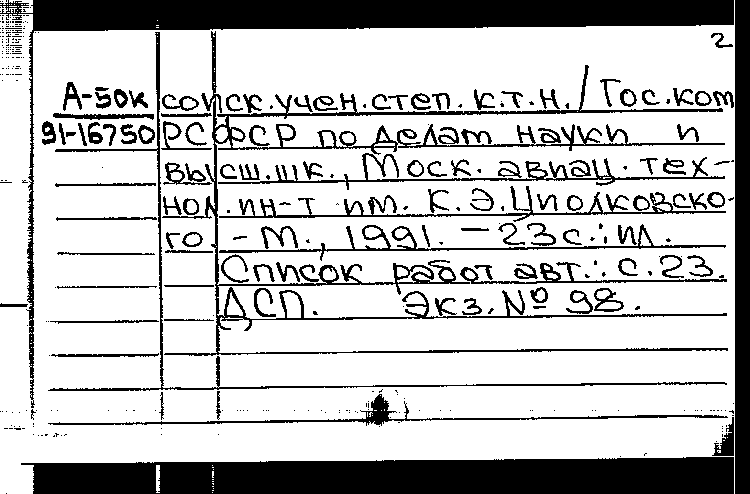 2
А-50к соиск. учен. степ. к.т.н. / Гос. ком
91-16750 РСФСР по делам науки и
высш. шк., Моск. авиац. тех-
нол. ин-т им. К.Э. Циолковско-
го. - М., 1991. - 23 с.: ил.
Список работ авт.: с. 23.
ДСП. Экз. № 98.